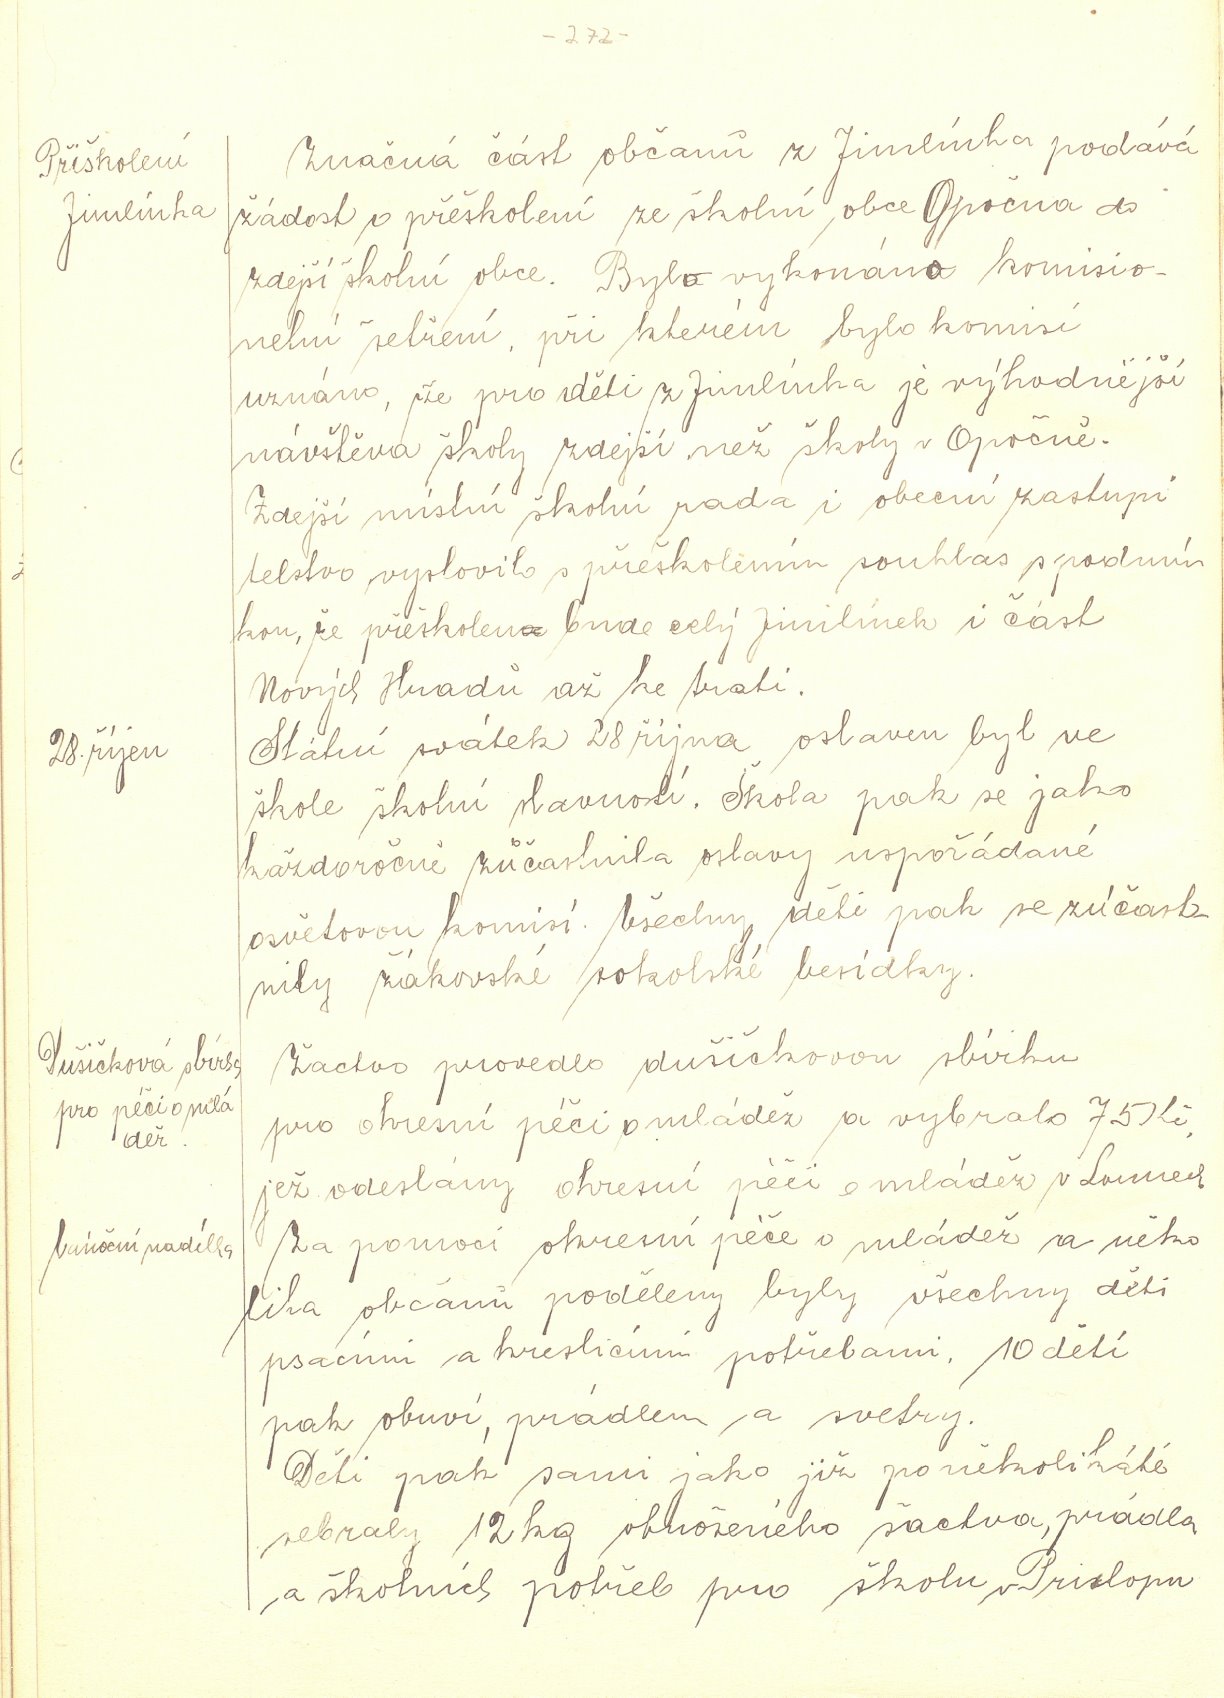 - 272 -
Přiškolení
Jimlínka
Značná část občanů z Jimlínka podává
žádost o přeškolení ze školní obce Opočna do
zdejší školní obce. Bylo vykonáno komisio-
nelní šetření, při kterém bylo komisí
uznáno, že pro děti z Jimlínka je výhodnější
návštěva školy zdejší než školy v Opočně.
Zdejší místní školní rada i obecní zastupi
telstvo vyslovilo s přeškolením souhlas s podmín
kou, že přeškolen bude celý Jimlínek i část
Nových Hradů až ke trati.
28. říjen
Státní svátek 28 října oslaven byl ve
škole školní slavností. Škola pak se jako
každoročně zůčastnila oslavy uspořádané
osvětovou komisí. Všechny děti pak se zúčast-
nily žákovské sokolské besídky.
Dušičková sbírka
pro péči o mlá
dež.
Žactvo provedlo dušičkovou sbírku
pro okresní péči o mládež a vybralo 75 Kč,
jež odeslány okresní péči o mládež v Lounech
Vánoční nadílka
Za pomoci okresní péče o mládež a něko
lika občanů poděleny byly všechny děti
psacími a kreslícími potřebami, 10 dětí
pak obuví, prádlem a svetry.
Děti pak sami jako již poněkolikáté
sebraly 12 kg obnošeného šactva, prádla
a školních potřeb pro školu v Prislopu